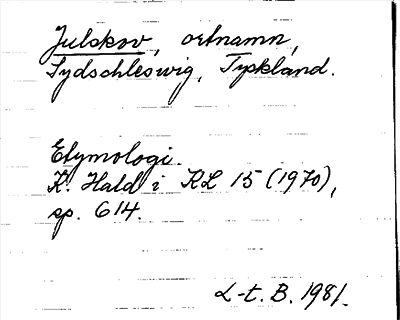 Julskov, ortnamn,
Sydschleswig, Tyskland.
Etymologi.
K. Hald i KL 15 (1970),
sp. 614.
L-t. B. 1981.